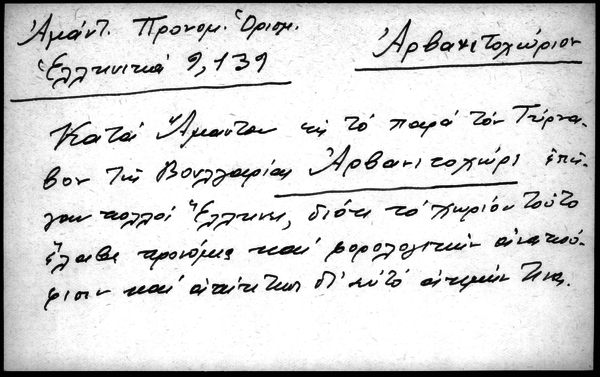 Ἀμάντ. Προνομ. Ὁρισμ.
Ἑλληνικά 9, 139
Ἀρβανιτοχώριον
Κατά Ἄμαντον εἰς τό παρά τόν Τύρνα-
βον τῆς Βουλγαρίας Ἀρβανιτοχώρι ἐπῆ-
γαν πολλοί Ἕλληνες, διότι τό χωρίον τοῦτο
ἔλαβε προνόμια καί φορολογικήν ἀνακού-
φισιν καί δι' αὐτό